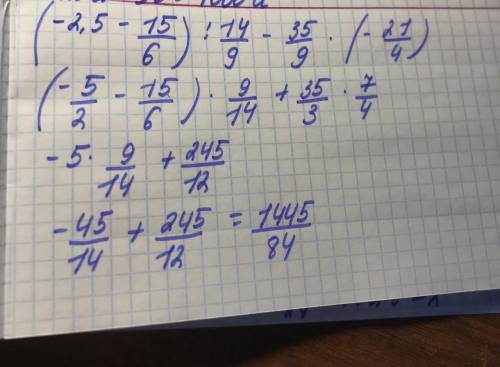 (-2,5 - 15/6) : 14/9 - 35/9 · (-21/4)
(-5/2 - 15/6) · 9/14 + 35/3 · 7/4
-5 · 9/14 + 245/12
-45/14 + 245/12 = 1445/84